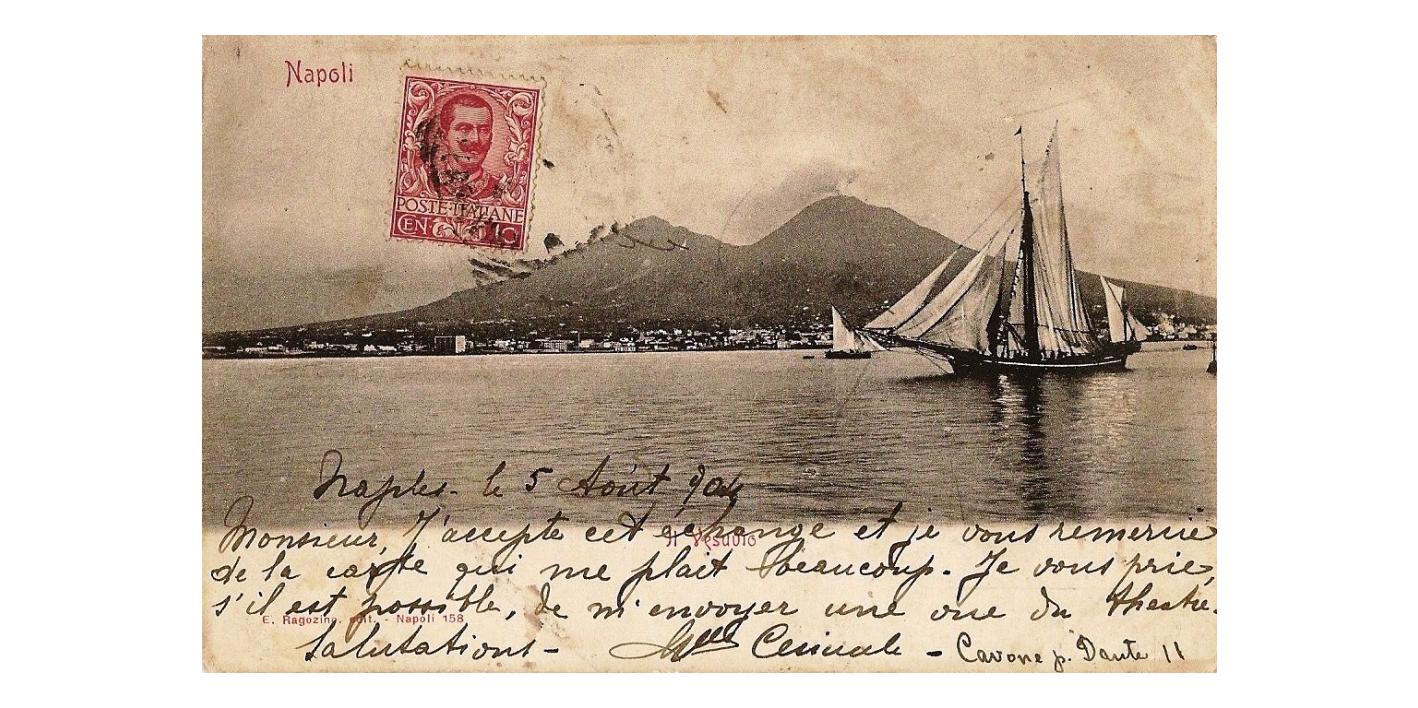 Napoli
POSTE ITALIANE
CEN
Naples - le 5 Août 904
Monsieur, J'accepte cet échange et je vous remercie
Il Vesuvio
de la carte qui me plait beaucoup. Je vous prie,
s'il est possible, de m'envoyer une vue du theatre.
E. Ragozino, edit. - Napoli 158
Salutations - Mlle - Cavone p. Dante 11